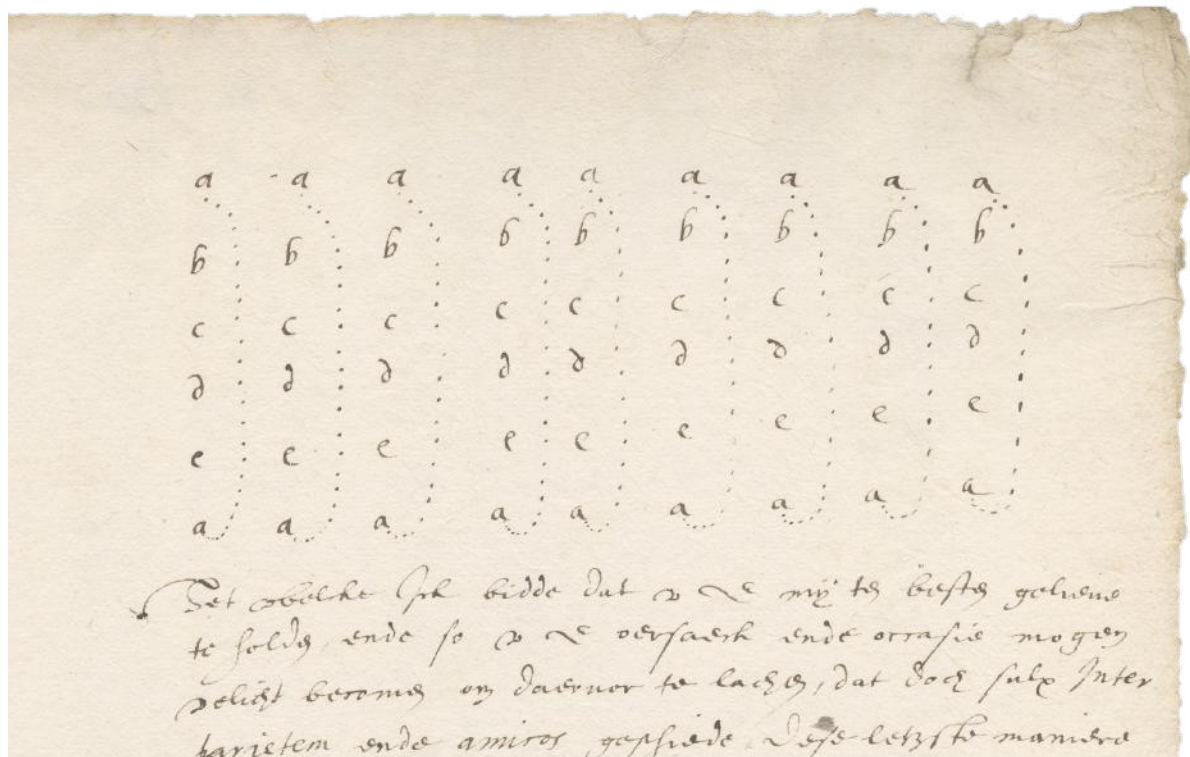 a a a a a a a a a
b b b b b b b b b
c c c c c c c c c
d d d d d d d d d
e e e e e e e e e
a a a a a a a a a
Het welcke Ick bidde dat v E my ten besten gelieve
te holden, ende so v E oersaeck ende occasie mogen
velicht becomen om daervor te lachen, dat doch sulx Inter
parietem ende amicos geschiede, dese letzste maniere